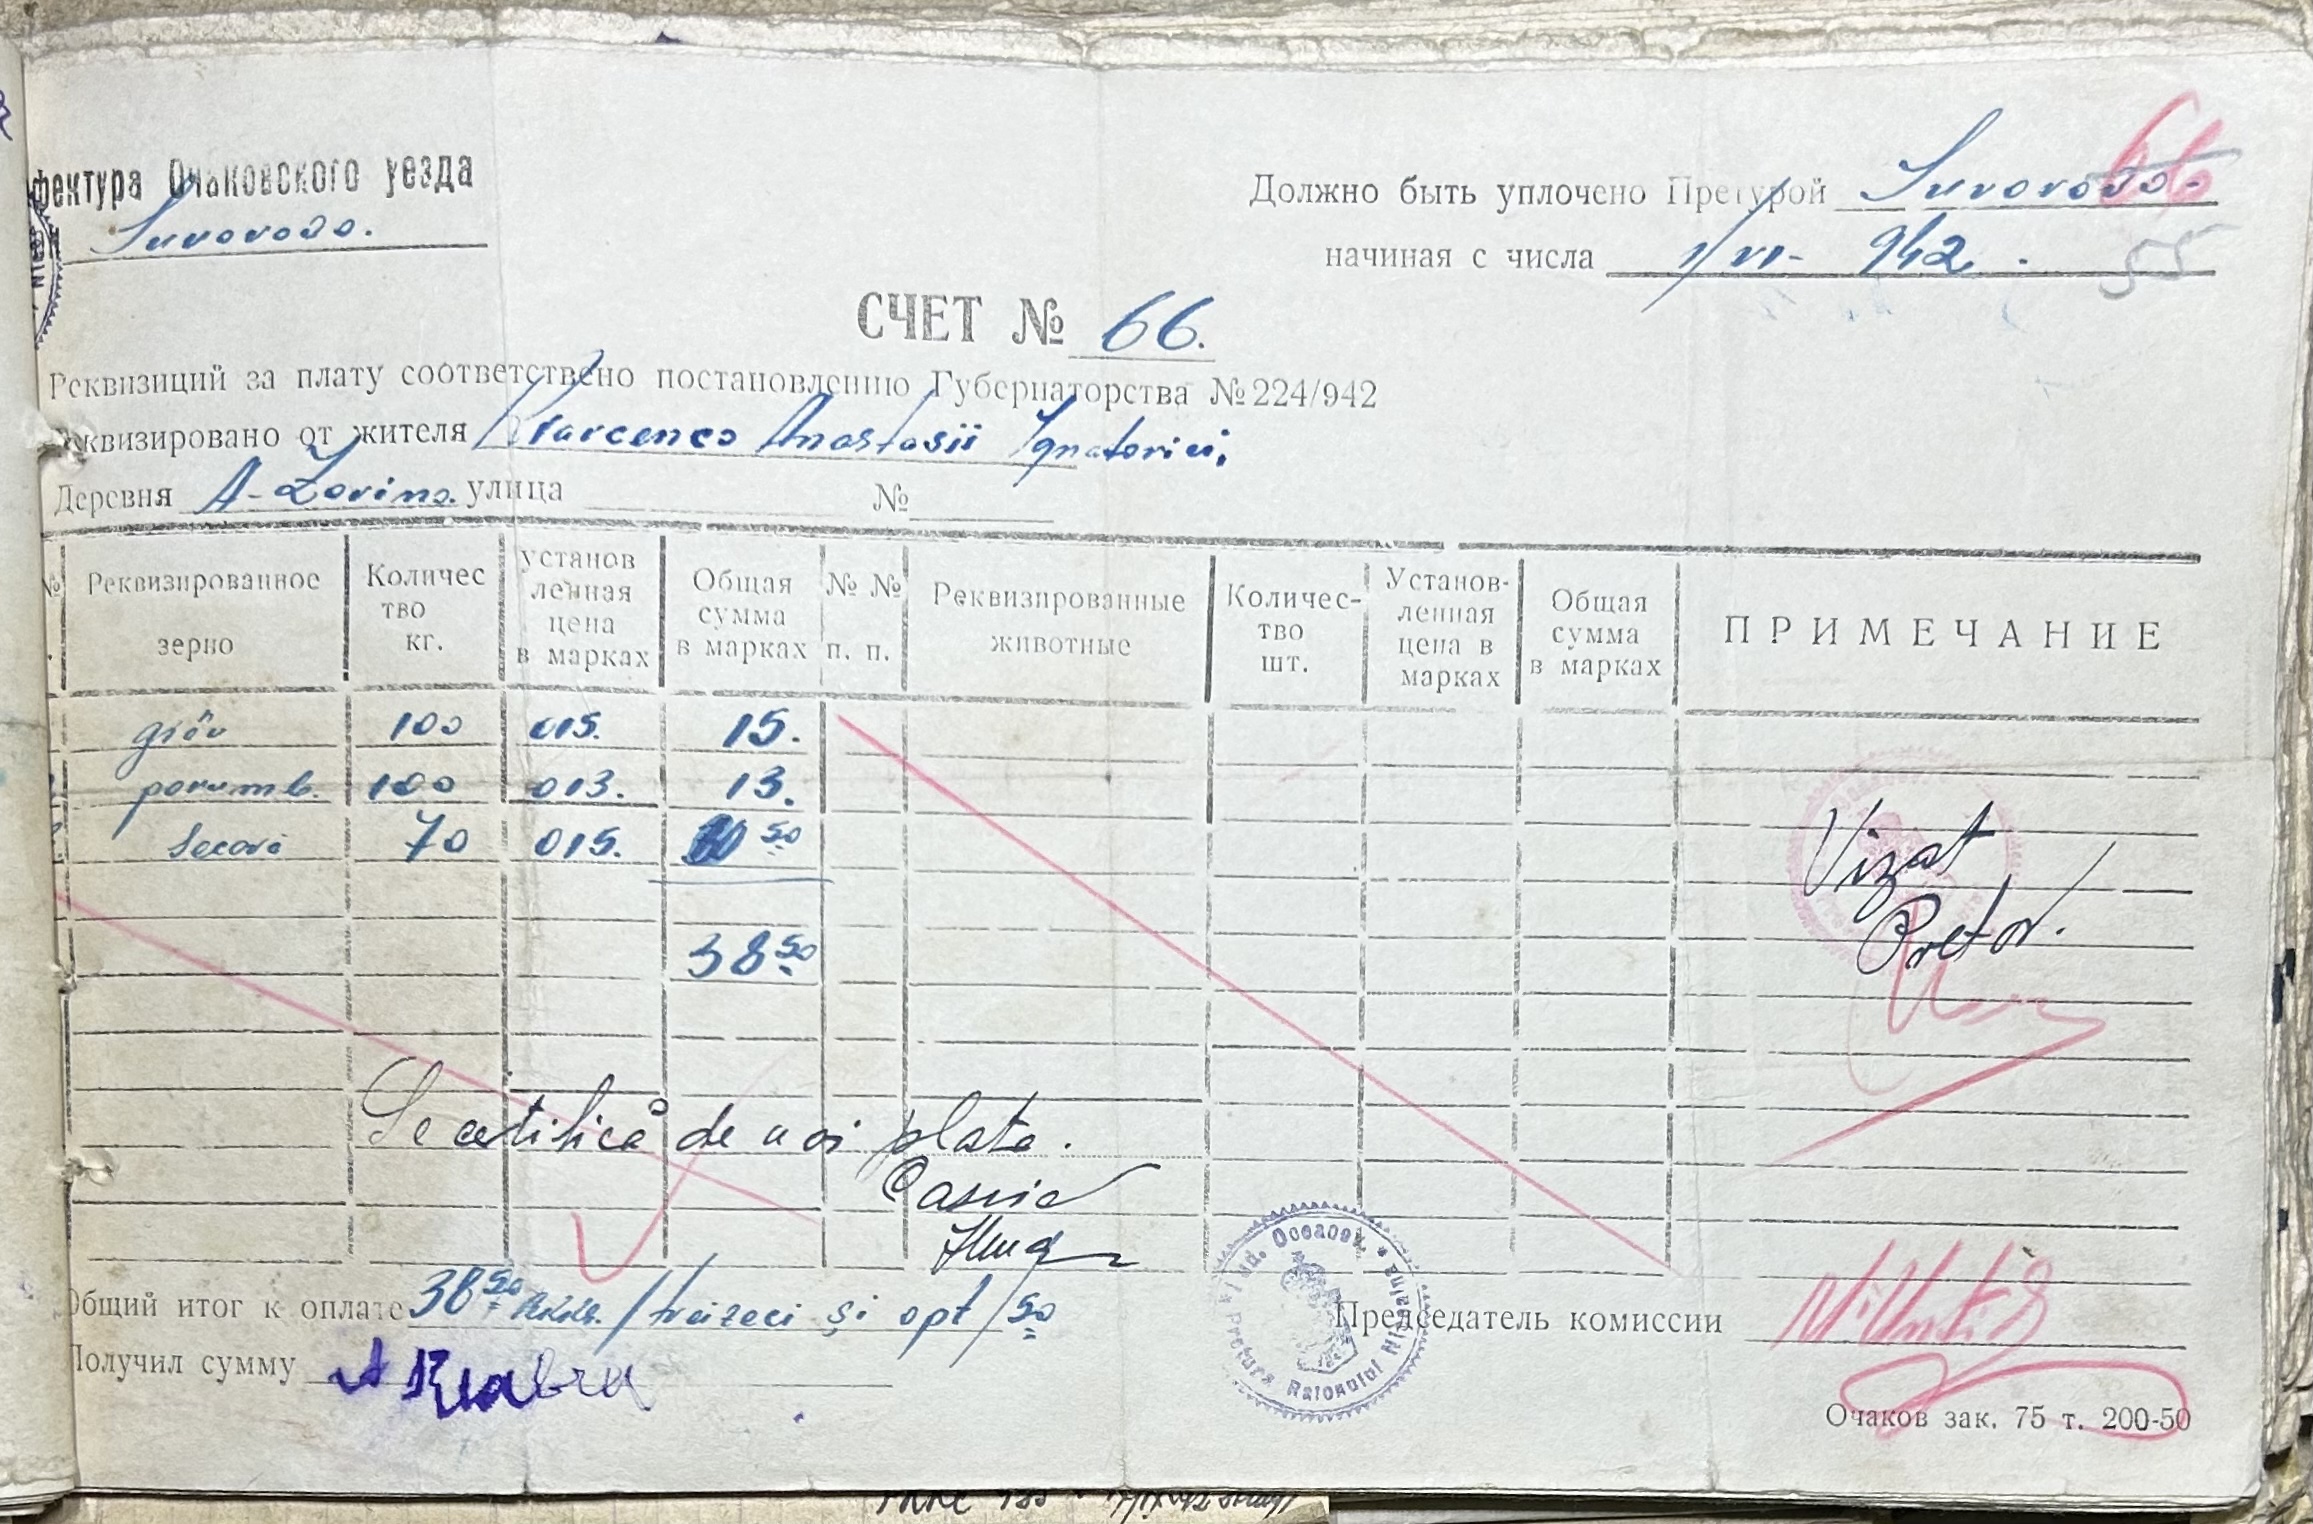 фектура Очаковского уезда
Suvorovo.
Должно быть уплочено Претурой Suvorovo.
66
начиная с числа 1/VI- 942.
55
СЧЕТ № 66.
Реквизиций за плату соответствено постановлению Губернаторства № 224/942
еквизировано от жителя Anastasii Ignatovici,
Деревня улица №
№ Реквизированное зерно Количес тво кг. установ ленная цена в марках Общая сумма в марках № № п. п. Реквизированные животные Количес- тво шт. Установ- ленная цена в марках Общая сумма в марках ПРИМЕЧАНИЕ
grâu 100 015. 15.
porumb. 100 013. 13.
secară 70 015. 10 50
Vizat
Pretor.
38 50
Se certifică de noi plata.
Casier
Общий итог к оплате 38 50 /treizeci și opt/50
Председатель комиссии
Получил сумму
Jud. Oceacov. Pretura Raionului
Очаков зак. 75 т. 200-50